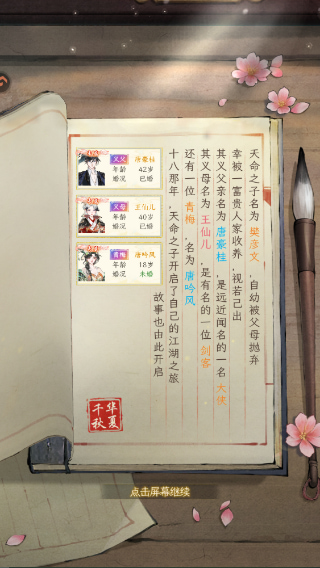 天命之子名为 樊彦文，自幼被父母抛弃
幸被一富贵人家收养，视若己出
其义父亲名为 唐豪桂，是远近闻名的一名 大侠
其义母名为 王仙儿，是有名的一位 剑客
还有一位 青梅，名为 唐吟风
十八那年，天命之子开启了自己的江湖之旅
故事也由此开启
义父 唐豪桂
年龄 42岁
婚况 已婚
义母 王仙儿
年龄 40岁
婚况 已婚
青梅 唐吟风
年龄 18岁
婚况 未婚
华夏
千秋
点击屏幕继续